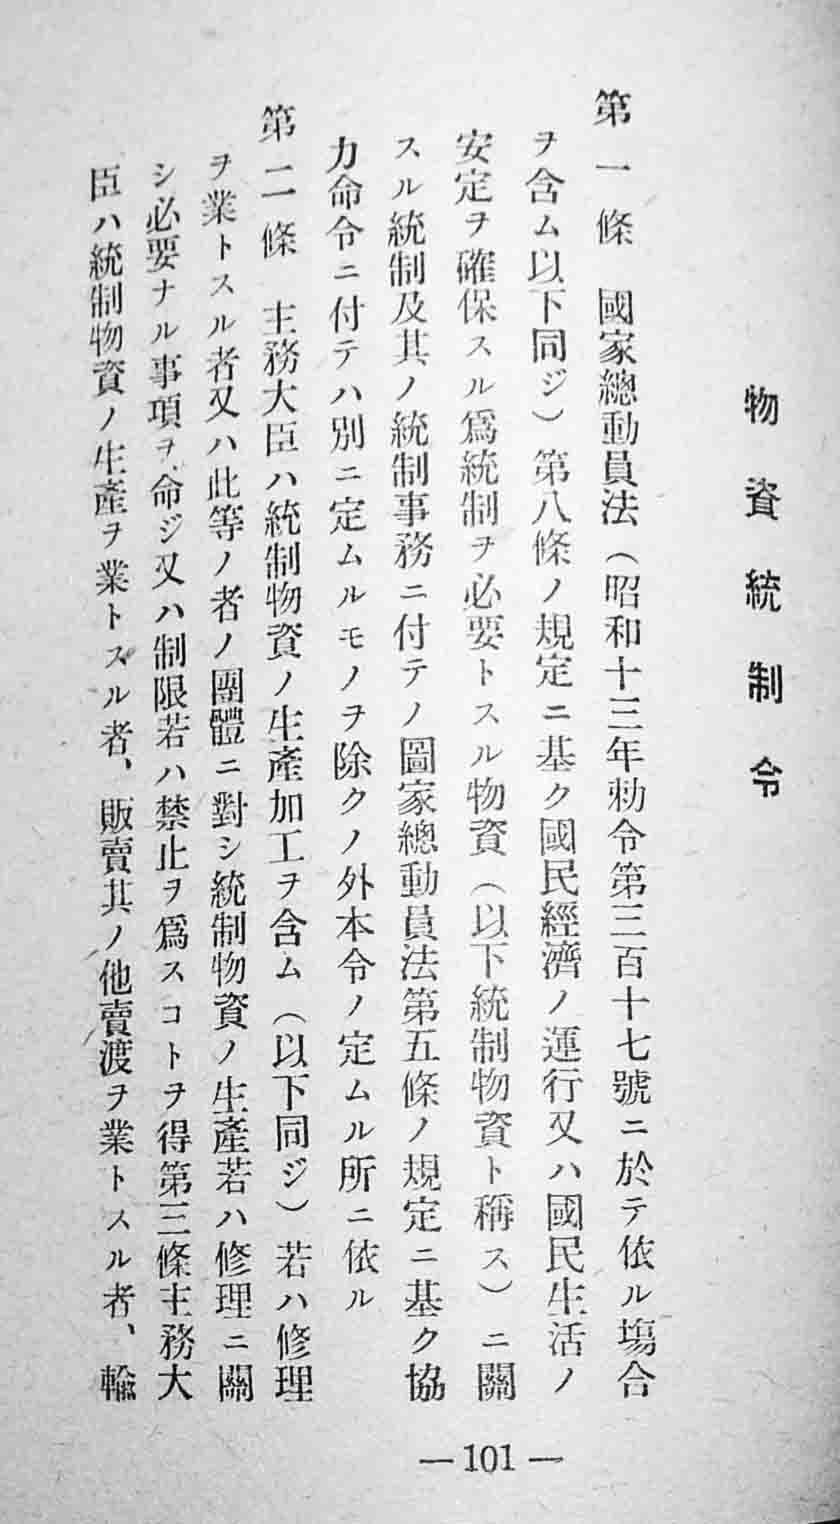 物資統制令
第一條　國家總動員法（昭和十三年勅令第三百十七號ニ於テ依ル塲合
ヲ含ム以下同ジ）第八條ノ規定ニ基ク國民經濟ノ運行又ハ國民生活ノ
安定ヲ確保スル爲統制ヲ必要トスル物資（以下統制物資ト稱ス）ニ關
スル統制及其ノ統制事務ニ付テノ圖家總動員法第五條ノ規定ニ基ク協
力命令ニ付テハ別ニ定ムルモノヲ除クノ外本令ノ定ムル所ニ依ル
第二條　主務大臣ハ統制物資ノ生產加工ヲ含ム（以下同ジ）若ハ修理
ヲ業トスル者又ハ此等ノ者ノ團體ニ對シ統制物資ノ生產若ハ修理ニ關
シ必要ナル事項ヲ命ジ又ハ制限若ハ禁止ヲ爲スコトヲ得第三條主務大
臣ハ統制物資ノ生產ヲ業トスル者、販賣其ノ他賣渡ヲ業トスル者、輸
—101—